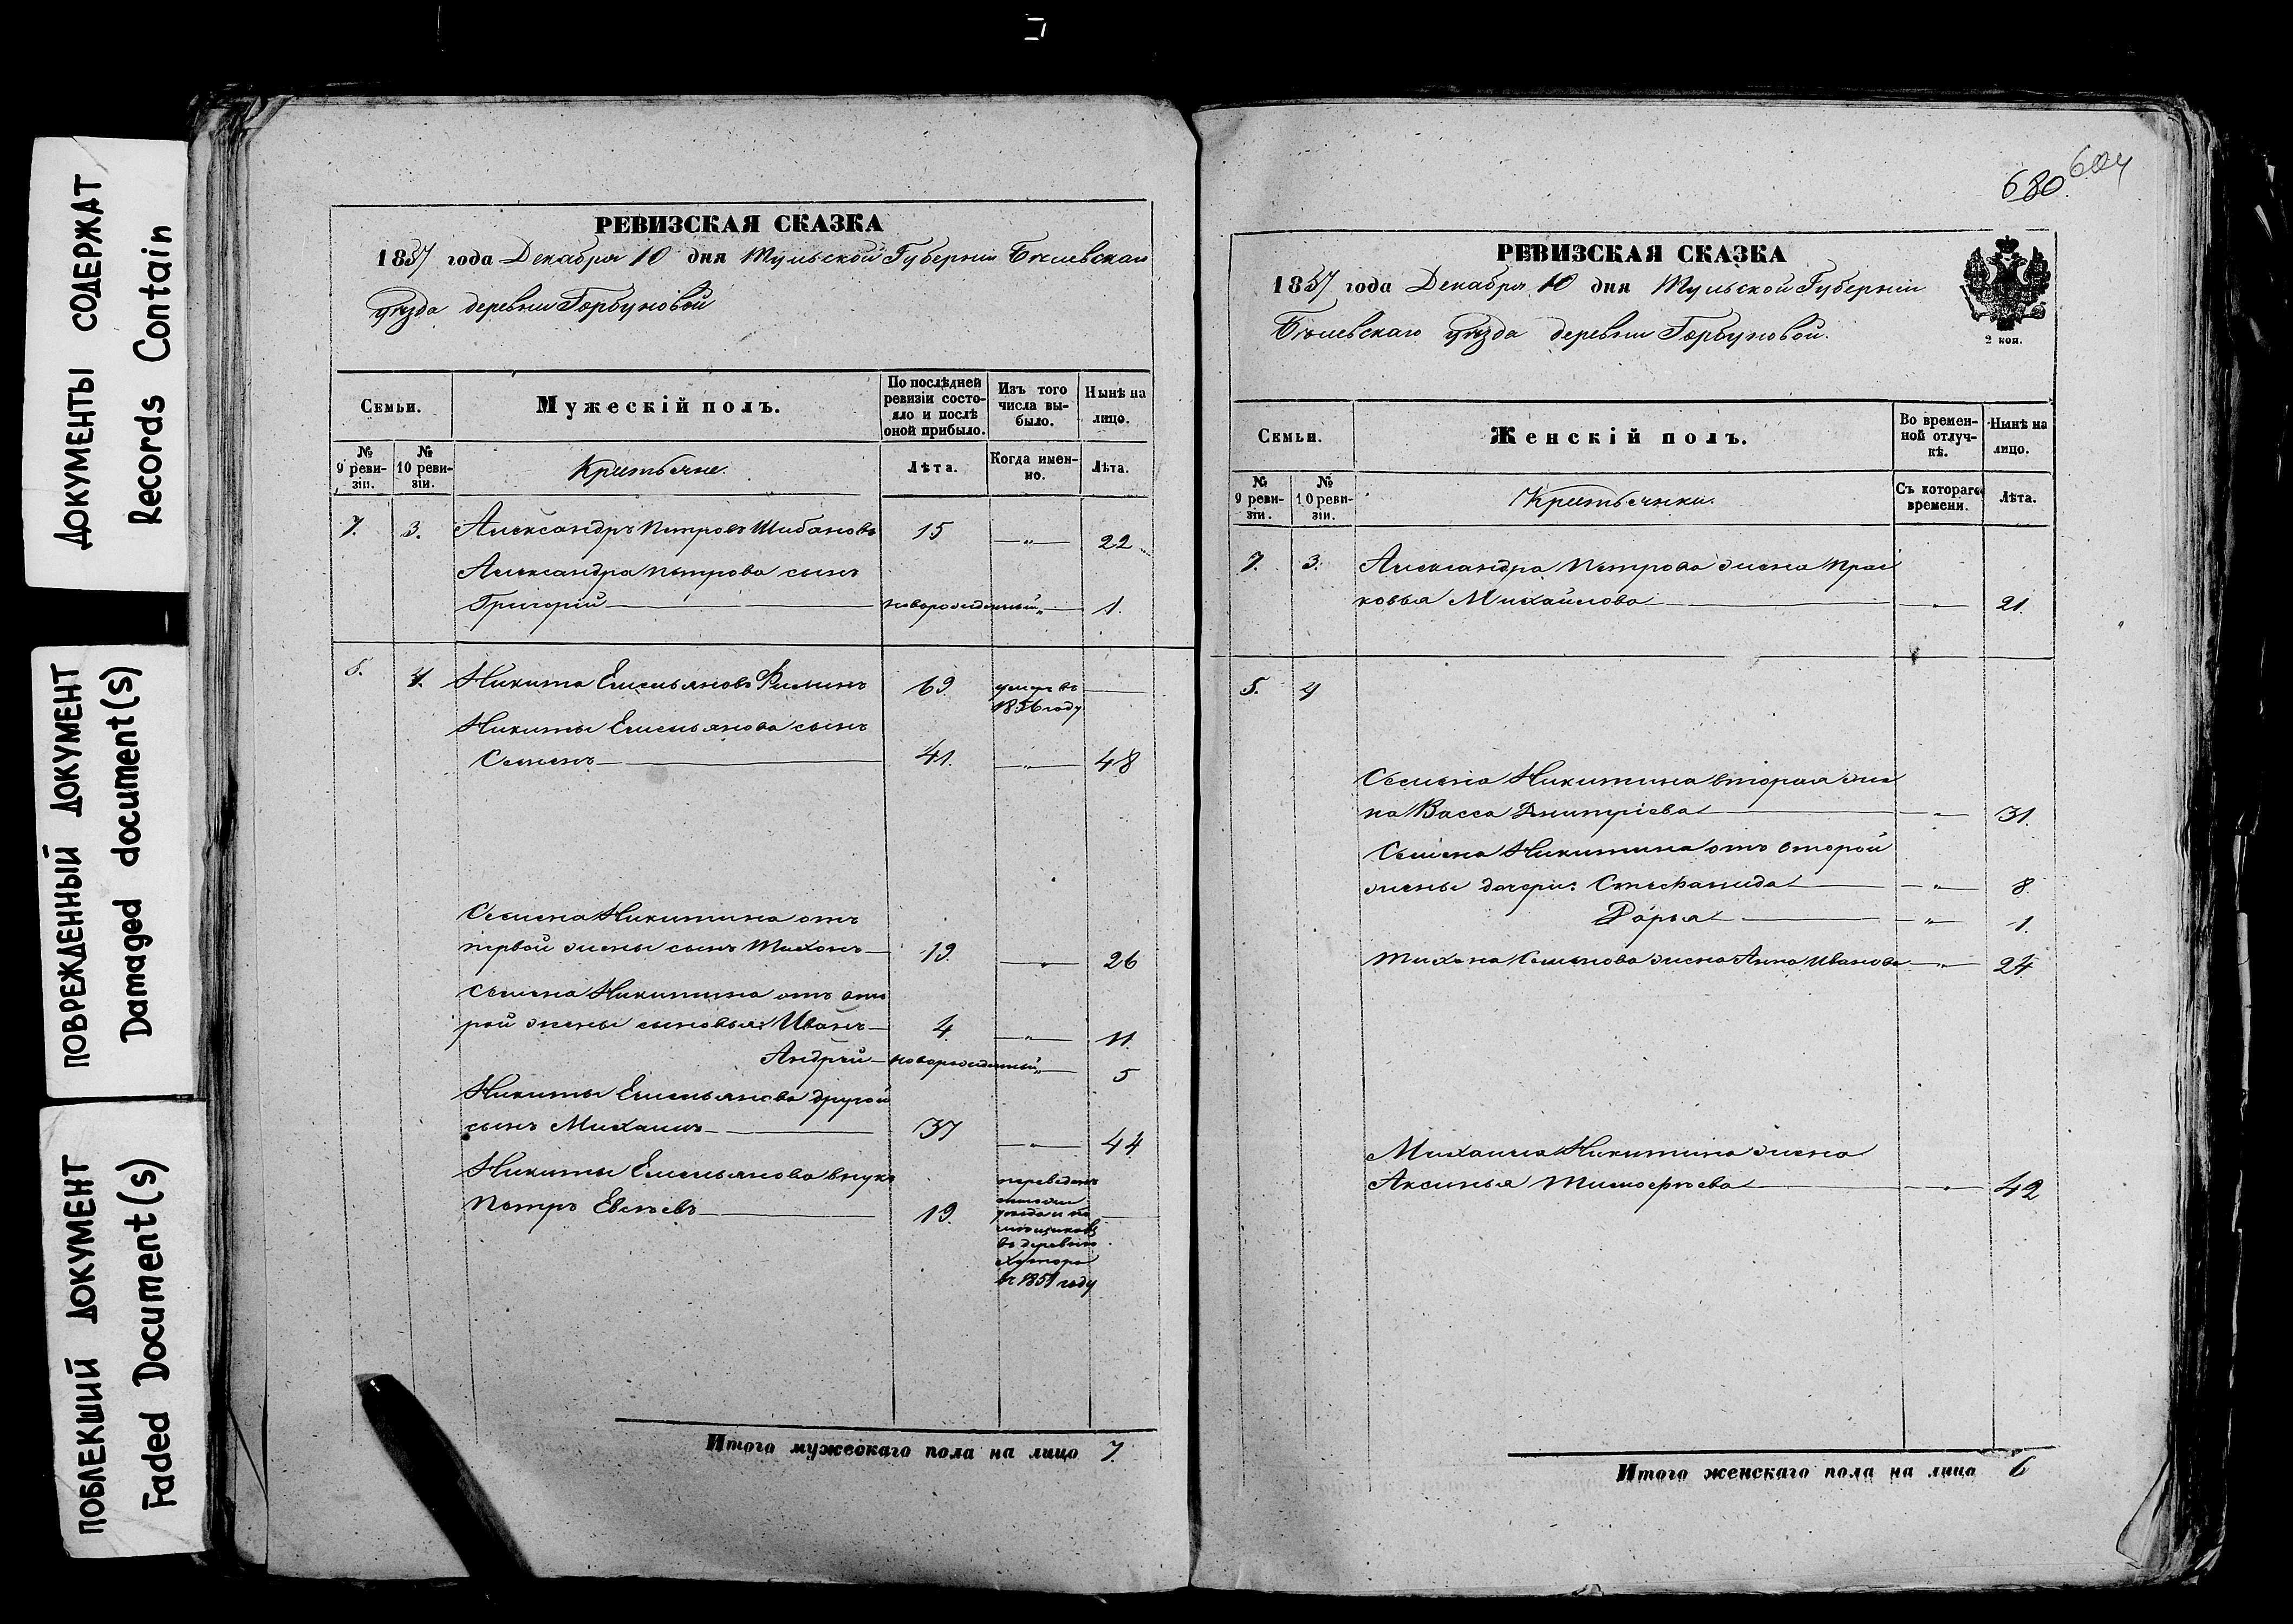 ДОКУМЕНТЫ СОДЕРЖАТ
Records Contain
ПОВРЕЖДЕННЫЙ ДОКУМЕНТ
Damaged document(s)
ПОБЛЕКШИЙ ДОКУМЕНТ
Faded Document(s)
РЕВИЗСКАЯ СКАЗКА
1857 года Декабря 10 дня Тульской Губернии Бѣлевскаго
уѣзда деревни Горбуновой
Семьи.
Мужескій полъ.
По послѣдней ревизіи состояло и послѣ оной прибыло.
Изъ того числа выбыло.
Нынѣ на лицо.
№ 9 ревизіи.
№ 10 ревизіи.
Крестьяне.
Лѣта.
Когда именно.
Лѣта.
7. 3. Александръ Петровъ Шибановъ 15 — " — 22
Александра Петрова сынъ
Григорій — новорожденный " — 1.
4. Никита Емельяновъ Филинъ 69. умеръ въ —
1856 году
Никиты Емельянова сынъ
Семенъ — 41. — " — 48
Семена Никитина отъ
первой жены сынъ Тихонъ — 19. — " — 26
Семена Никитина отъ вто
рой жены сыновья: Иванъ — 4. — " — 11.
Андрей — новорожденный " — 5
Никиты Емельянова другой
сынъ Михаилъ — 37 — " — 44
Никиты Емельянова внукъ
Петръ Евсѣевъ — 19. —
переведенъ
уѣзда и по
мѣщиковъ
въ деревню
Хутора
въ 1851 году
Итого мужескаго пола на лицо 7.
680 604
РЕВИЗСКАЯ СКАЗКА
1857 года Декабря 10 дня Тульской Губерніи
Бѣлевскаго уѣзда деревни Горбуновой.
2 коп.
Семьи.
Женскій полъ.
Во временной отлучкѣ.
Нынѣ на лицо.
№ 9 ревизіи.
№ 10 ревизіи.
Крестьянки.
Съ котораго времени.
Лѣта.
7. 3. Александра Петрова жена Прас
ковья Михайлова — " — 21.
4
Семена Никитина вторая же
на Васса Дмитріева — " — 31.
Семена Никитина отъ второй
жены дочери: Стефанида — " — 8.
Дарья — " — 1.
Тихона Семенова жена Анна Иванова — " — 24
Михаила Никитина жена
Аксинья Тимофѣева — " — 42
Итого женскаго пола на лицо 6